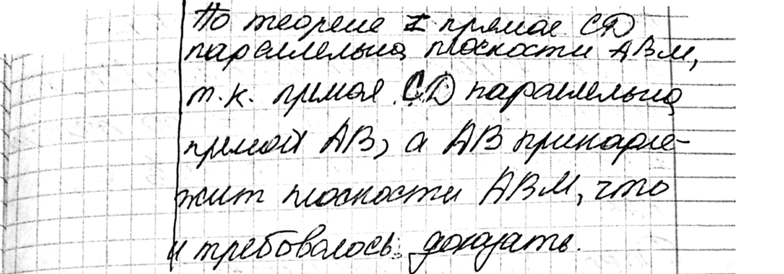 По теореме I прямая CD
параллельна плоскости ABM,
т.к. прямая CD параллельна
прямой AB, а AB принадле-
жит плоскости ABM, что
и требовалось доказать.